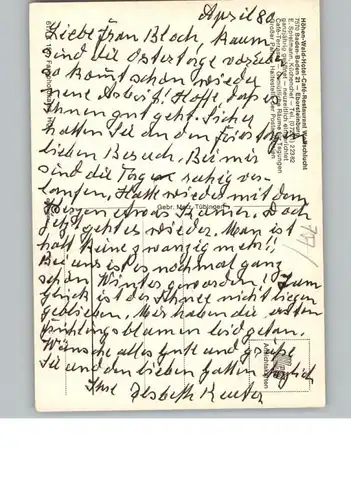 April 80
Liebe Frau Bloch, kaum
sind die Ostertage vorüber
so kommt schon wieder
neue Arbeit! Hoffe, daß es
Ihnen gut geht. Sicher
hatten Sie an den Feiertagen
lieben Besuch. Bei mir
sind die Tage ruhig ver-
laufen. Hatte wieder mit dem
Herzen etwas Kummer. Doch
jetzt geht es wieder. Man ist
halt keine zwanzig mehr!!
Bei uns ist es nochmal ganz
schön Winter geworden. Zum
Glück ist der Schnee nicht liegen
geblieben. Mir haben die ersten
Frühlingsblumen leid getan.
Wünsche alles Gute und grüße
Sie und den lieben Gatten herzlich
Ihre Elsbeth Reuter
Höhen-Wald-Hotel-Café-Restaurant Waldschlucht
7570 Baden-Baden 21 – Ebersteinburg
E. Spielmann, Küchenchef – Tel. (07221) 22382
ganzjährig geöffnet – neuzeitlich eingerichtet
Gebr. Metz, Tübingen